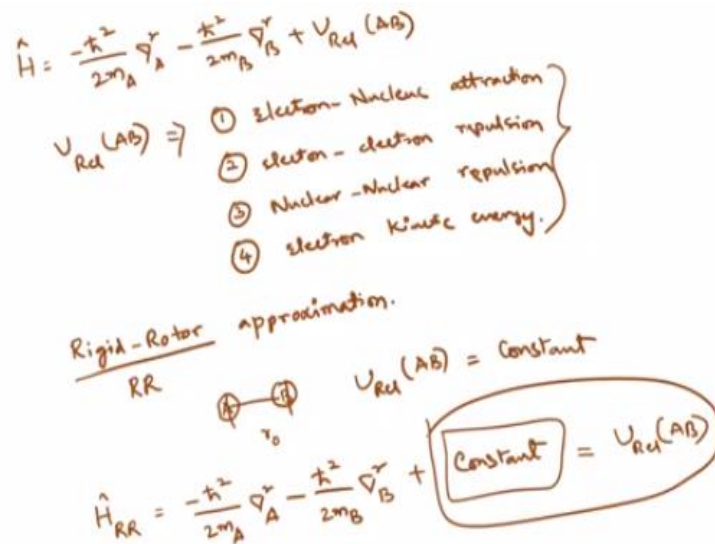 Ĥ = -ħ²/2m_A ∇²_A - ħ²/2m_B ∇²_B + U_Rel (AB)
U_Rel (AB) ⇒ ① Electron-Nucleus attraction
② electron - electron repulsion
③ Nuclear-Nuclear repulsion
④ electron kinetic energy.
Rigid-Rotor approximation.
RR
A B U_Rel(AB) = Constant
r₀
Ĥ_RR = -ħ²/2m_A ∇²_A - ħ²/2m_B ∇²_B + Constant = U_Rel(AB)